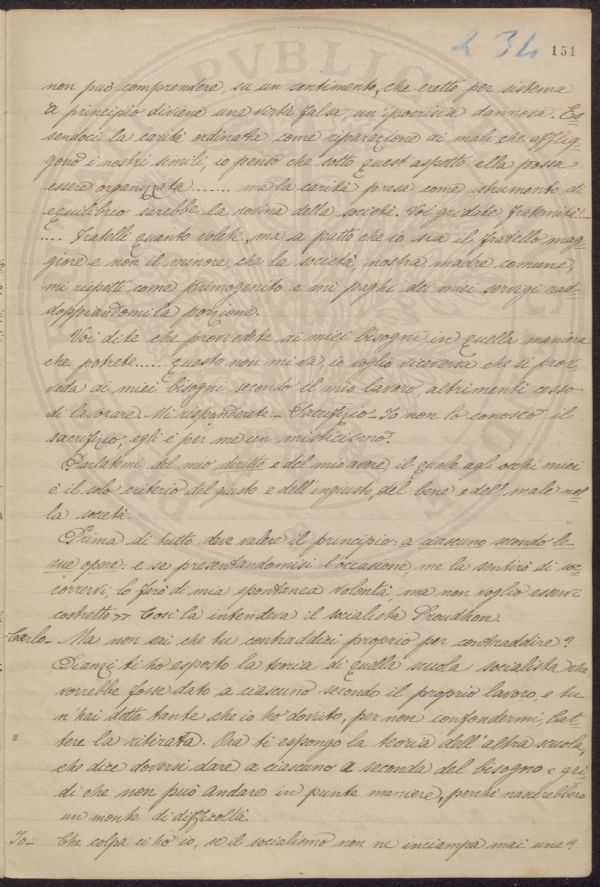 2 34 151
non può comprendere, su un sentimento, che eretto per sistema
a principio diviene una virtù falsa, un'ipocrisia dannosa. Es-
sendoci la carità ordinata come riparazione ai mali che afflig-
gono i nostri simili, io penso che sotto quest'aspetto ella possa
essere organizzata ....... ma la carità presa come istrumento di
equilibrio sarebbe la rovina della società. Voi gridate fraternità!...
.... Fratelli quanto volete, ma a patto che io sia il fratello mag-
giore e non il minore, che la società, nostra madre comune,
mi rispetti come primogenito e mi paghi dei miei servigi rad-
doppiandomi la porzione.
Voi dite che provvedete ai miei bisogni in quella maniera
che potrete..... questo non mi va, io voglio viceversa che si prov-
veda ai miei bisogni secondo il mio lavoro, altrimenti cesso
di lavorare. Mi risponderete - Sacrifizio - Io non lo conosco il
sacrifizio; egli è per me un misticismo.
Parlatemi del mio diritto e del mio avere, il quale agli occhi miei
è il solo criterio del giusto e dell'ingiusto, del bene e dell'male nel-
la società.
Prima di tutto deve valere il principio: a ciascuno secondo le
sue opere: e se presentandomisi l'occasione, me la sentirò di soc-
corrervi, lo farò di mia spontanea volontà, ma non voglio esservi
costretto >> Così la intendeva il socialista Proudhon.
Carlo - Ma non sai che tu contraddici proprio per contraddire?
Dianzi ti ho esposto la teoria di quella scuola socialista che
vorrebbe fosse dato a ciascuno secondo il proprio lavoro e tu
n'hai dette tante che io ho dovuto, per non confondermi, bat-
tere la ritirata. Ora ti espongo la teoria dell'altra scuola,
che dice doversi dare a ciascuno a seconda del bisogno e gri-
di che non può andare in punte maniere, perché nascerebbero
un monte di difficoltà.
Io - Che colpa ci ho io, se il socialismo non ne inciampa mai una?